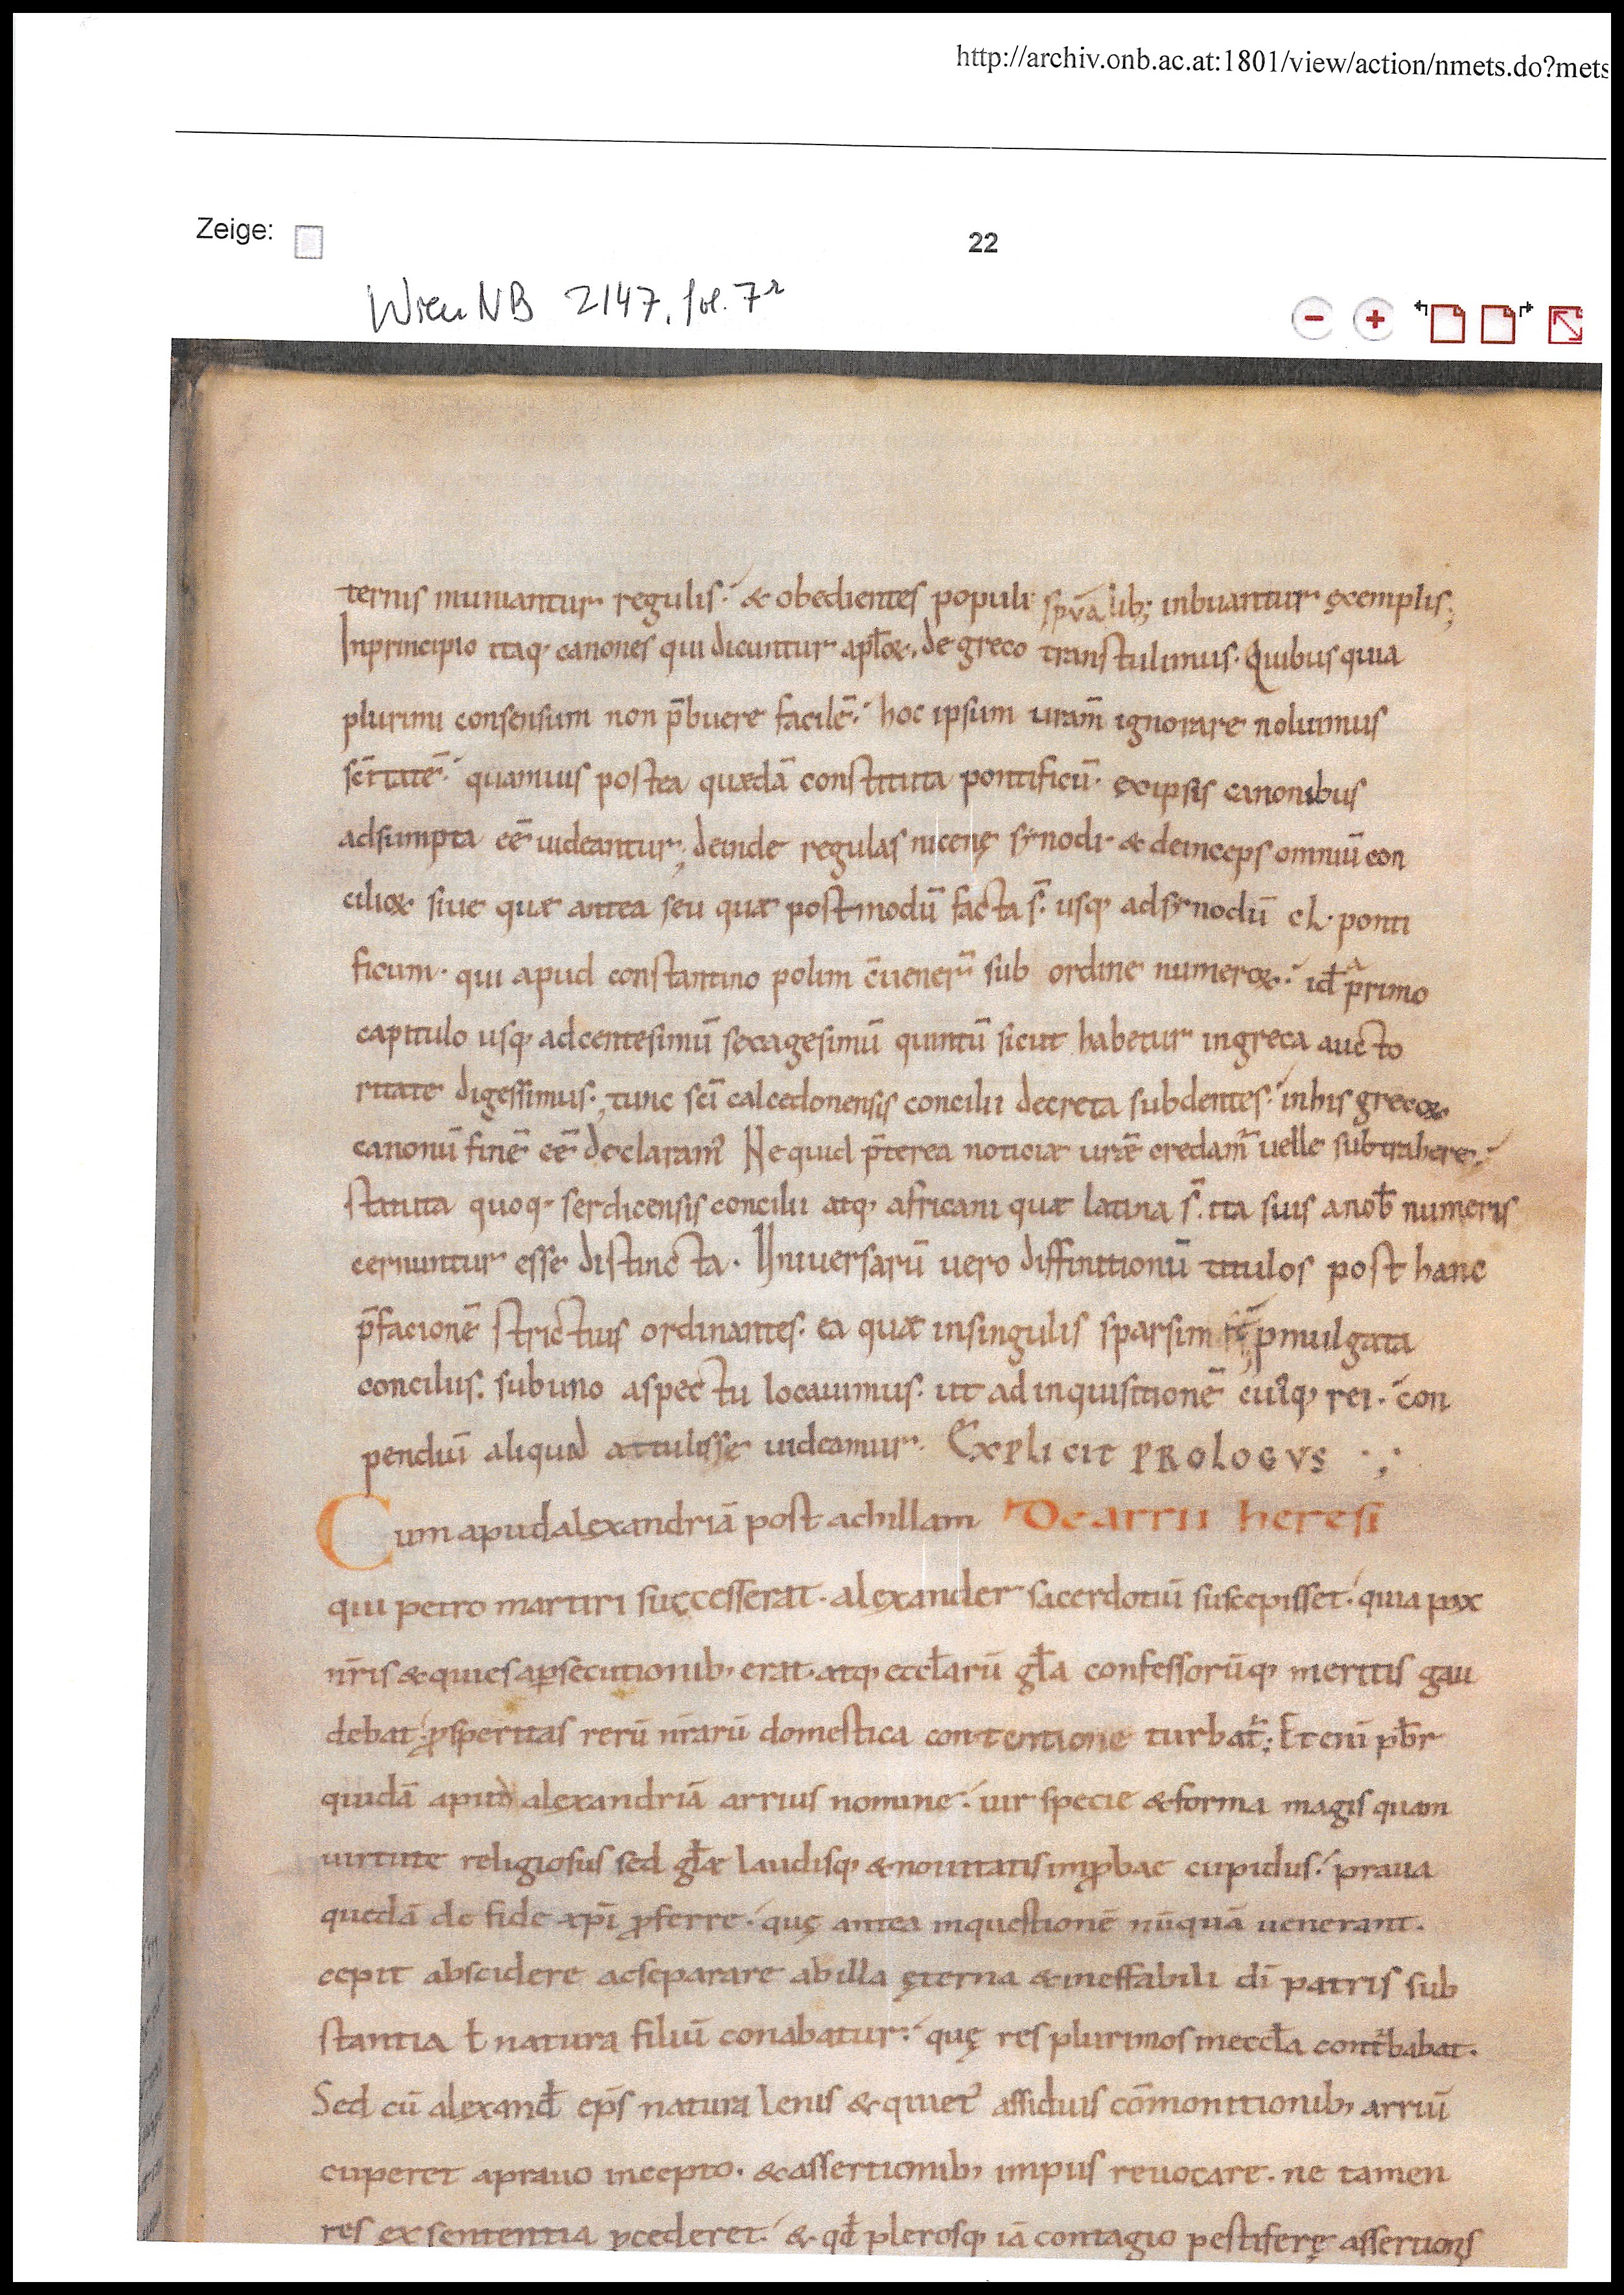 http://archiv.onb.ac.at:1801/view/action/nmets.do?mets
Zeige:
22
Wien NB 2147, fol. 7r
ternis muniantur regulis. & obedientes populi sp̄uālib; inbuantur exemplis;
Inprincipio itaq; canones qui dicuntur apl̄oꝝ. de greco transtulimus. Quibus quia
plurimi consensum non p̄buere facilē. hoc ipsum uram̄ ignorare noluimus
sc̄ritatē. quamuis postea quædā constituta pontificū. ęxipsis canonibus
adsumpta eē uideantur; deinde regulas nicenę synodi & deinceps omniū con
cilioꝝ siue quæ antea seu quæ postmodū facta s̄. usq; adsynodū cl. ponti
ficum. qui apud constantino polim c̄uener̄ sub ordine numeroꝝ. id̄ a primo
capitulo usq; adcentesimū sexagesimū quintū sicut habetur ingreca aucto
ritate digessimus. tunc sc̄i calcedonensis concilii decreta subdentes. inhis grecoꝝ
canonū finē eē declaram᾽ Ne quid p̄terea noticiæ urāe credam᾽ uelle subtrahere.
statuta quoq; serdicensis concilii atq; africani quæ latina s̄. ita suis anob̄ numeris
cernuntur esse distincta. Uniuersarū uero diffinitionū titulos post hanc
p̄facionē strictius ordinantes. ea quæ insingulis sparsim ꝓmulgata
conciliis. subuno aspectu locauimus. ut ad inquisitionē cui᾽q; rei. con
pendiū aliquid attulisse uideamur. Explicit PROLOGVS
Cum apud alexandriā post achillam De arrii heresi
qui petro martiri successerat. alexander sacerdotiū suscepisset. quia pax
nr̄is & quies aꝑsecutionib; erat. atq; eccl̄arū gl̄a confessorūq; meritis gau
debat. ꝓsperitas rerū nr̄arū domestica contentione turbat᾽; Et eni pb̄r
quidā apud alexandriā arrius nomine. uir specie & forma magis quam
uirtute religiosus sed gl̄æ laudisq; & nouitatis imꝓbae cupidus. praua
quedā de fide xp̄i ꝓferre. quę antea inquestionē nūquā uenerant.
cepit abscidere acseparare abilla ęterna & ineffabili dī patris sub
stantia ł natura filiū conabatur. quę res plurimos ineccl̄a cont᾽babat.
Sed cū alexand̄ ep̄s natura lenis & quiet᾽ assiduis cōmonitionib; arriū
cuperet aprauo incepto. & assertionib; impiis reuocare. ne tamen
res ex sententia ꝓcederet. & qd̄ plerosq; iā contagio pestiferę assertionis